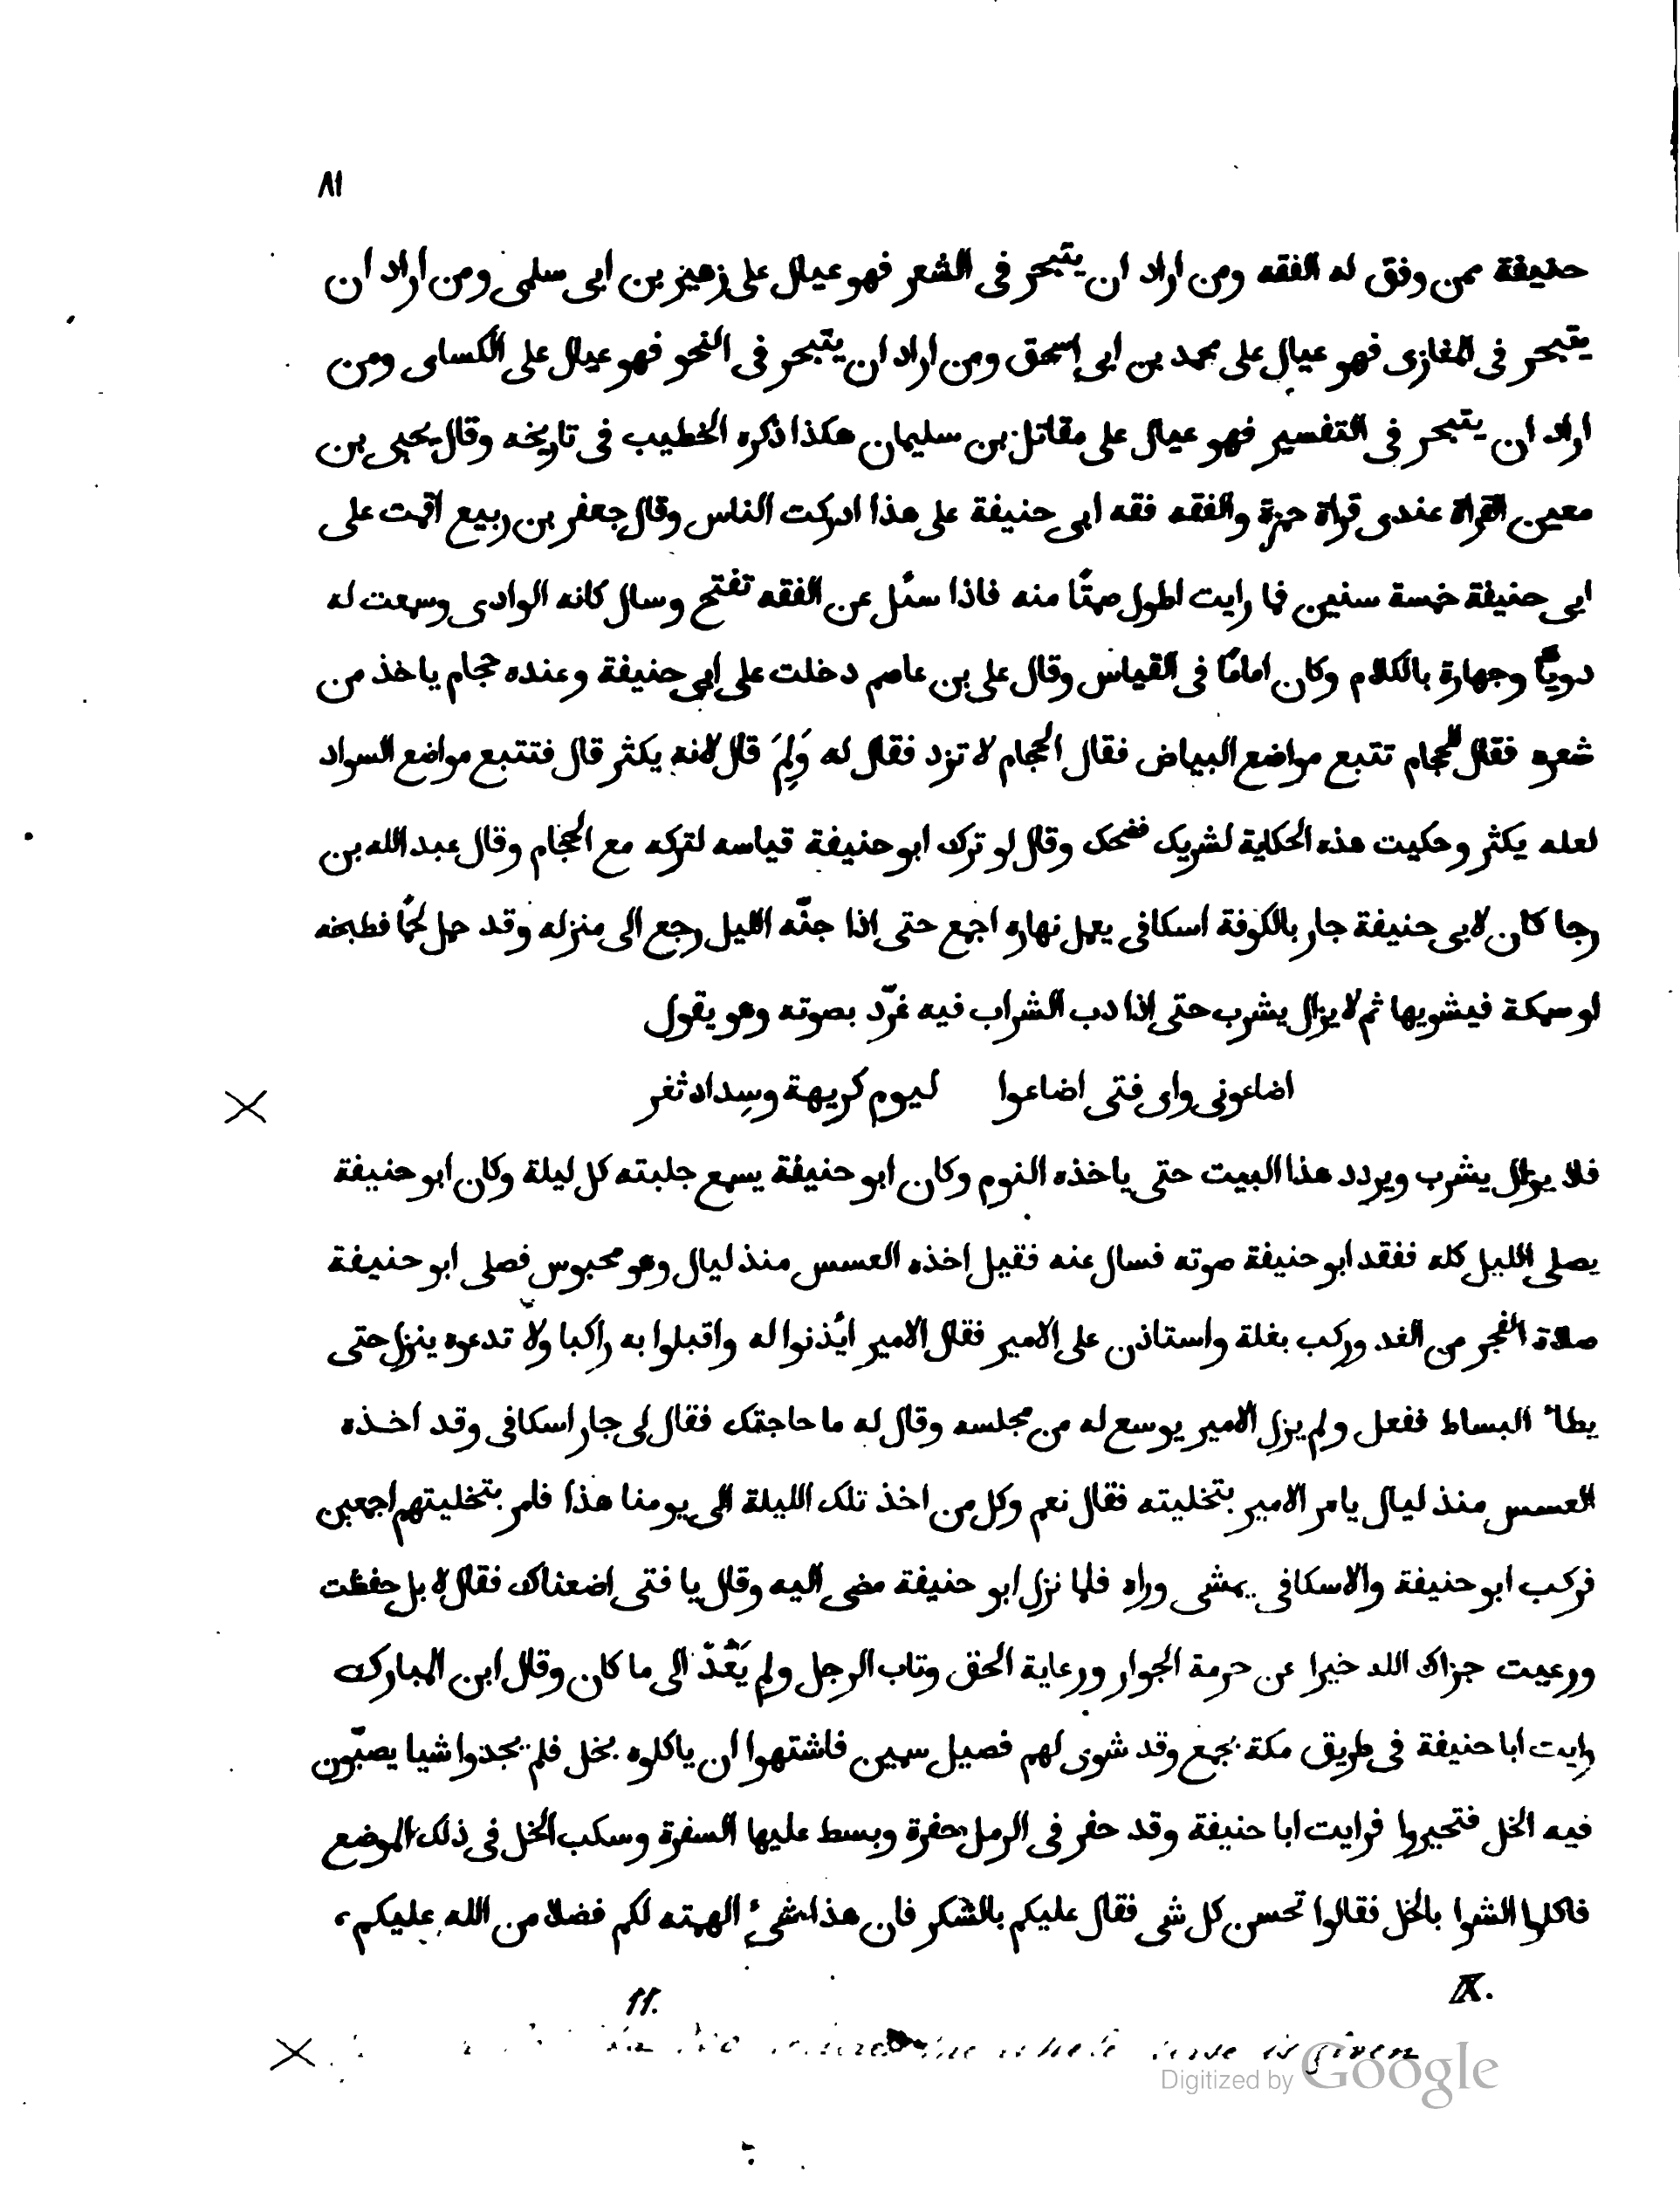 ٨١
حنيفة ممن وفق له الفقه ومن اراد ان يتبحر فى الشعر فهو عيال على زهير بن ابى سلمى ومن اراد ان
يتبحر فى المغازى فهو عيال على محمد بن ابى اسحق ومن اراد ان يتبحر فى النحو فهو عيال على الكساى ومن
اراد ان يتبحر فى التفسير فهو عيال على مقاتل بن سليمان هكذا ذكره الخطيب فى تاريخه وقال يحيى بن
معين القراة عندى قراة حمزة والفقه فقه ابى حنيفة على هذا ادركت الناس وقال جعفر بن ربيع اقمت على
ابى حنيفة خمسة سنين فما رايت اطول صمتًا منه فاذا سئل عن الفقه تفتح وسال كانه الوادى وسمعت له
دويًّا وجهارة بالكلام وكان امامًا فى القياس وقال على بن عاصم دخلت على ابى حنيفة وعنده حجام ياخذ من
شعره فقال للحجام تتبع مواضع البياض فقال الحجام لا تزد فقال له وَلِمَ قال لانه يكثر قال فتتبع مواضع السواد
لعله يكثر وحكيت هذه الحكاية لشريك فضحك وقال لو ترك ابو حنيفة قياسه لتركه مع الحجام وقال عبد الله بن
رجا كان لابى حنيفة جار بالكوفة اسكافى يعمل نهاره اجمع حتى اذا جنّه الليل رجع الى منزله وقد حمل لحمًا فطبخه
او سمكة فيشويها ثم لا يزال يشرب حتى اذا دب الشراب فيه غرّد بصوته وهو يقول
اضاعونى واى فتى اضاعوا ليوم كريهة وسِداد ثغر
فلا يزال يشرب ويردد هذا البيت حتى ياخذه النوم وكان ابو حنيفة يسمع جلبته كل ليلة وكان ابو حنيفة
يصلى الليل كله ففقد ابو حنيفة صوته فسال عنه فقيل اخذه العسس منذ ليال وهو محبوس فصلى ابو حنيفة
صلاة الفجر من الغد وركب بغلة واستاذن على الامير فقال الامير ائذنوا له واقبلوا به راكبا ولا تدعوه ينزل حتى
يطا البساط ففعل ولم يزل الامير يوسع له من مجلسه وقال له ما حاجتك فقال لى جار اسكافى وقد اخذه
العسس منذ ليال يامر الامير بتخليته فقال نعم وكل من اخذ تلك الليلة الى يومنا هذا فامر بتخليتهم اجمعين
فركب ابو حنيفة والاسكافى يمشى وراه فلما نزل ابو حنيفة مضى اليه وقال يا فتى اضعناك فقال لا بل حفظت
ورعيت جزاك الله خيرا عن حرمة الجوار ورعاية الحق وتاب الرجل ولم يَعُدّ الى ما كان وقال ابن المبارك
رايت ابا حنيفة فى طريق مكة بجمع وقد شوى لهم فصيل سمين فاشتهوا ان ياكلوه بخل فلم يجدوا شيا يصبّون
فيه الخل فتحيروا فرايت ابا حنيفة وقد حفر فى الرمل حفرة وبسط عليها السفرة وسكب الخل فى ذلك الموضع
فاكلوا الشوا بالخل فقالوا تحسن كل شى فقال عليكم بالشكر فان هذا شئ الهمته لكم فضلا من الله عليكم،
IX.
11.
is given
Digitized by Google